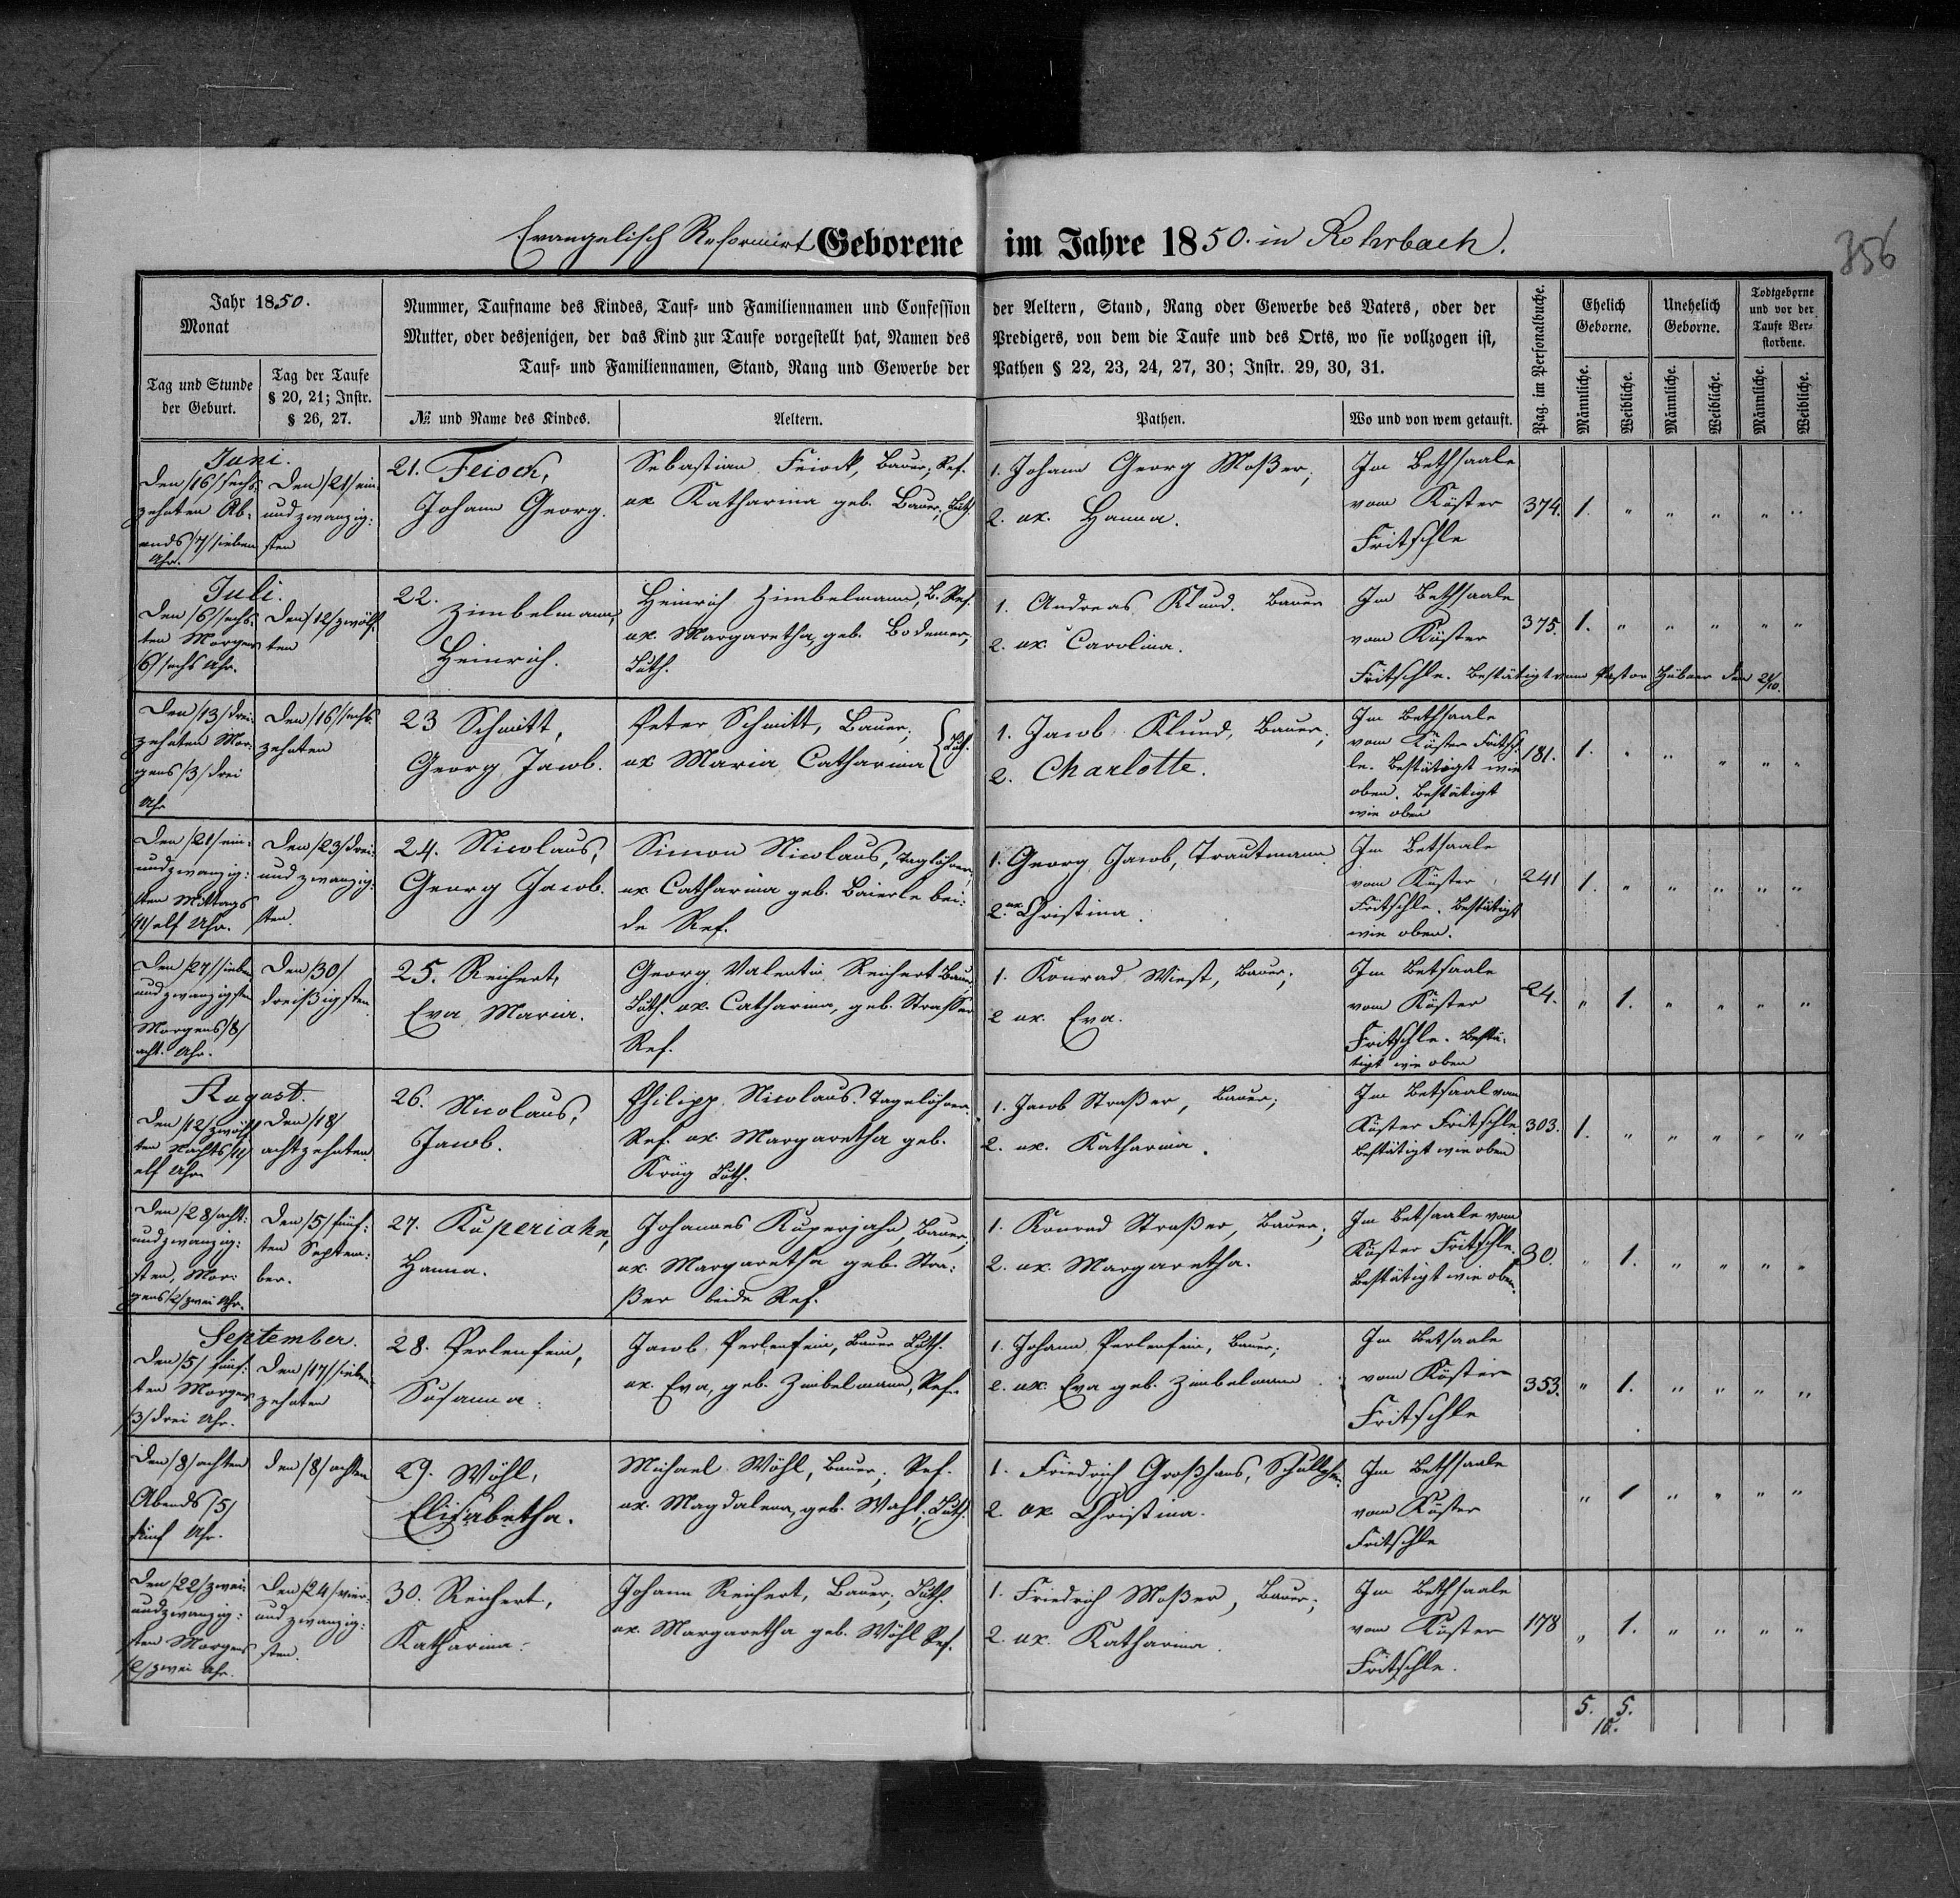 Evangelisch Reformirt Geborene im Jahre 1850. in Rohrbach.
356
Jahr 1850.
Monat
Tag und Stunde
der Geburt.
Tag der Taufe
§ 20, 21; Instr.
§ 26, 27.
Nummer, Taufname des Kindes, Tauf= und Familiennamen und Confession der Aeltern, Stand, Rang oder Gewerbe des Vaters, oder der
Mutter, oder desjenigen, der das Kind zur Taufe vorgestellt hat, Namen des Predigers, von dem die Taufe und des Orts, wo sie vollzogen ist,
Tauf= und Familiennamen, Stand, Rang und Gewerbe der Pathen § 22, 23, 24, 27, 30; Instr. 29, 30, 31.
№ und Name des Kindes.
Aeltern.
Pathen.
Wo und von wem getauft.
Pag. im Personalbuche.
Ehelich
Geborne.
Unehelich
Geborne.
Todtgeborne
und vor der
Taufe Ver=
storbene.
Männliche.
Weibliche.
Männliche.
Weibliche.
Männliche.
Weibliche.
Juni.
Den /16/ sechs-
zehnten Ab-
ends /7/ sieben
Uhr.
Den /21/ ein
und zwanzig:
sten
21. Feiock,
Johann Georg.
Sebastian Feiock, Bauer, Ref.
ux Katharina geb. Bauer, Luth.
1. Johann Georg Moßer;
2. ux. Hanna.
Im Bethsaale
vom Küster
Fritschle
374. 1. " " " " "
Juli.
Den /6/ sechs-
ten Morgens
/6/ sechs Uhr.
Den /12/ zwölf-
ten
22. Zimbelmann,
Heinrich.
Heinrich Zimbelmann, B. Ref.
ux. Margaretha, geb. Bodemer,
Luth.
1. Andreas Klund. Bauer
2. ux. Carolina.
Im Bethsaale
vom Küster
Fritschle. Bestätigt vom Pastor Hübner den 21/10.
375. 1. " " " " "
Den /13/ drei-
zehnten Mor-
gens /3/ drei
Uhr
Den /16/ sechs-
zehnten
23 Schmitt,
Georg Jacob.
Peter Schmitt, Bauer,
ux Maria Catharina } Luth.
1. Jacob Klund, Bauer;
2. Charlotte.
Im Bethsaale
vom Küster Fritsch-
le. Bestätigt wie
oben. Bestätigt
wie oben
181. 1. " " " " "
Den /21/ ein-
und zwanzig:
sten Mittags
/11/ elf Uhr.
Den /23/ drei-
und zwanzig:
sten.
24. Nicolaus,
Georg Jacob.
Simon Nicolaus, Taglöhner,
ux. Catharina geb. Baierle bei-
de Ref.
1. Georg Jacob, Trautmann
2. ux. Christina.
Im Betsaale
vom Küster
Fritschle. Bestätigt
wie oben.
241 1. " " " " "
Den /27/ sieben
und zwanzigsten
Morgens /8/
acht Uhr.
Den /30/
dreißigsten
25. Reichert,
Eva Maria.
Georg Valentin Reichert Bauer,
Luth. ux. Catharina, geb. Strasser
Ref.
1. Konrad Wiest, Bauer;
2 ux. Eva.
Im Betsaale
vom Küster
Fritschle. Bestä-
tigt wie oben
24. " 1. " " " "
August.
Den /12/ zwölf-
ten Nachts /11/
elf Uhr.
Den /18/
achtzehnten.
26. Nicolaus,
Jacob.
Philipp Nicolaus. Tagelöhner.
Ref. ux. Margaretha geb.
Krüg Luth.
1. Jacob Straßer, Bauer;
2. ux. Katharina.
Im Betsaal vom
Küster Fritschle.
Bestätigt wie oben
303. 1. " " " " "
Den /28/ acht:
und zwanzig:
sten, Mor:
gens /2/ zwei Uhr.
Den /5/ fünf:
ten Septem:
ber.
27. Kuperiahn,
Hanna.
Johannes Kuperjahn, Bauer;
ux. Margaretha geb. Stra:
ßer beide Ref.
1. Konrad Straßer, Bauer;
2. ux. Margaretha.
Im Betsaale vom
Küster Fritschle.
Bestätigt wie oben.
30. " 1. " " " "
September.
Den /5/ fünf:
ten Morgens
/3/ drei Uhr.
Den /17/ sieben-
zehnten
28. Perlenfein,
Susanna.
Jacob Perlenfein, Bauer Luth.
ux. Eva, geb. Zimbelmann, Ref.
1. Johann Perlenfein, Bauer;
2. ux. Eva geb. Zimbelmann
Im Betsaale
vom Küster
Fritschle
353. " 1. " " " "
Den /8/ achten
Abends /5/
fünf Uhr.
den /8/ achten
29. Wöhl,
Elisabetha.
Michael Wöhl, Bauer, Ref.
ux. Magdalena, geb. Wahl, Luth.
1. Friedrich Großhans,
2. ux Christina.
Im Bethsaale
vom Küster
Fritschle
" 1 " " " "
Den /22/ zwei
und zwanzig:
sten Morgens
/2/ zwei Uhr.
Den /24/ vier-
und zwanzig:
sten.
30. Reichert,
Katharina.
Johann Reichert, Bauer; Luth.
ux. Margaretha geb. Wöhl Ref.
1. Friedrich Moßer, Bauer;
2. ux. Katharina.
Im Bethsaale
vom Küster
Fritschle.
178 " 1. " " " "
5. 5.
10.